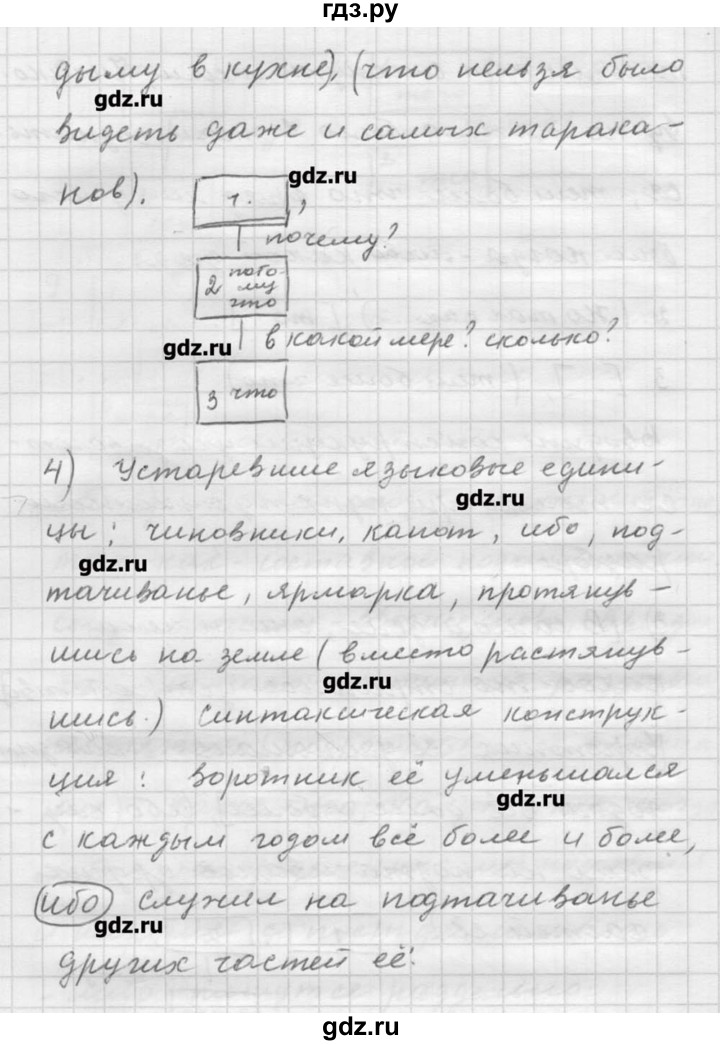 гдз.ру
дыму в кухне), (что нельзя было
gdz.ru
видеть даже и самых тарака-
gdz.ru
нов).
1. ,
почему?
2 пото-
му
что
gdz.ru
в какой мере? сколько?
3 что
4) Устаревшие языковые едини-
gdz.ru
цы: чиновники, капот, ибо, под-
gdz.ru
тачиванье, ярмарка, протянув-
шись на земле (вместо растянув-
gdz.ru
шись.) Синтаксическая конструк-
ция: Воротник её уменьшался
gdz.ru
с каждым годом всё более и более,
ибо служил на подтачиванье
gdz.ru
других частей её.
gdz.ru